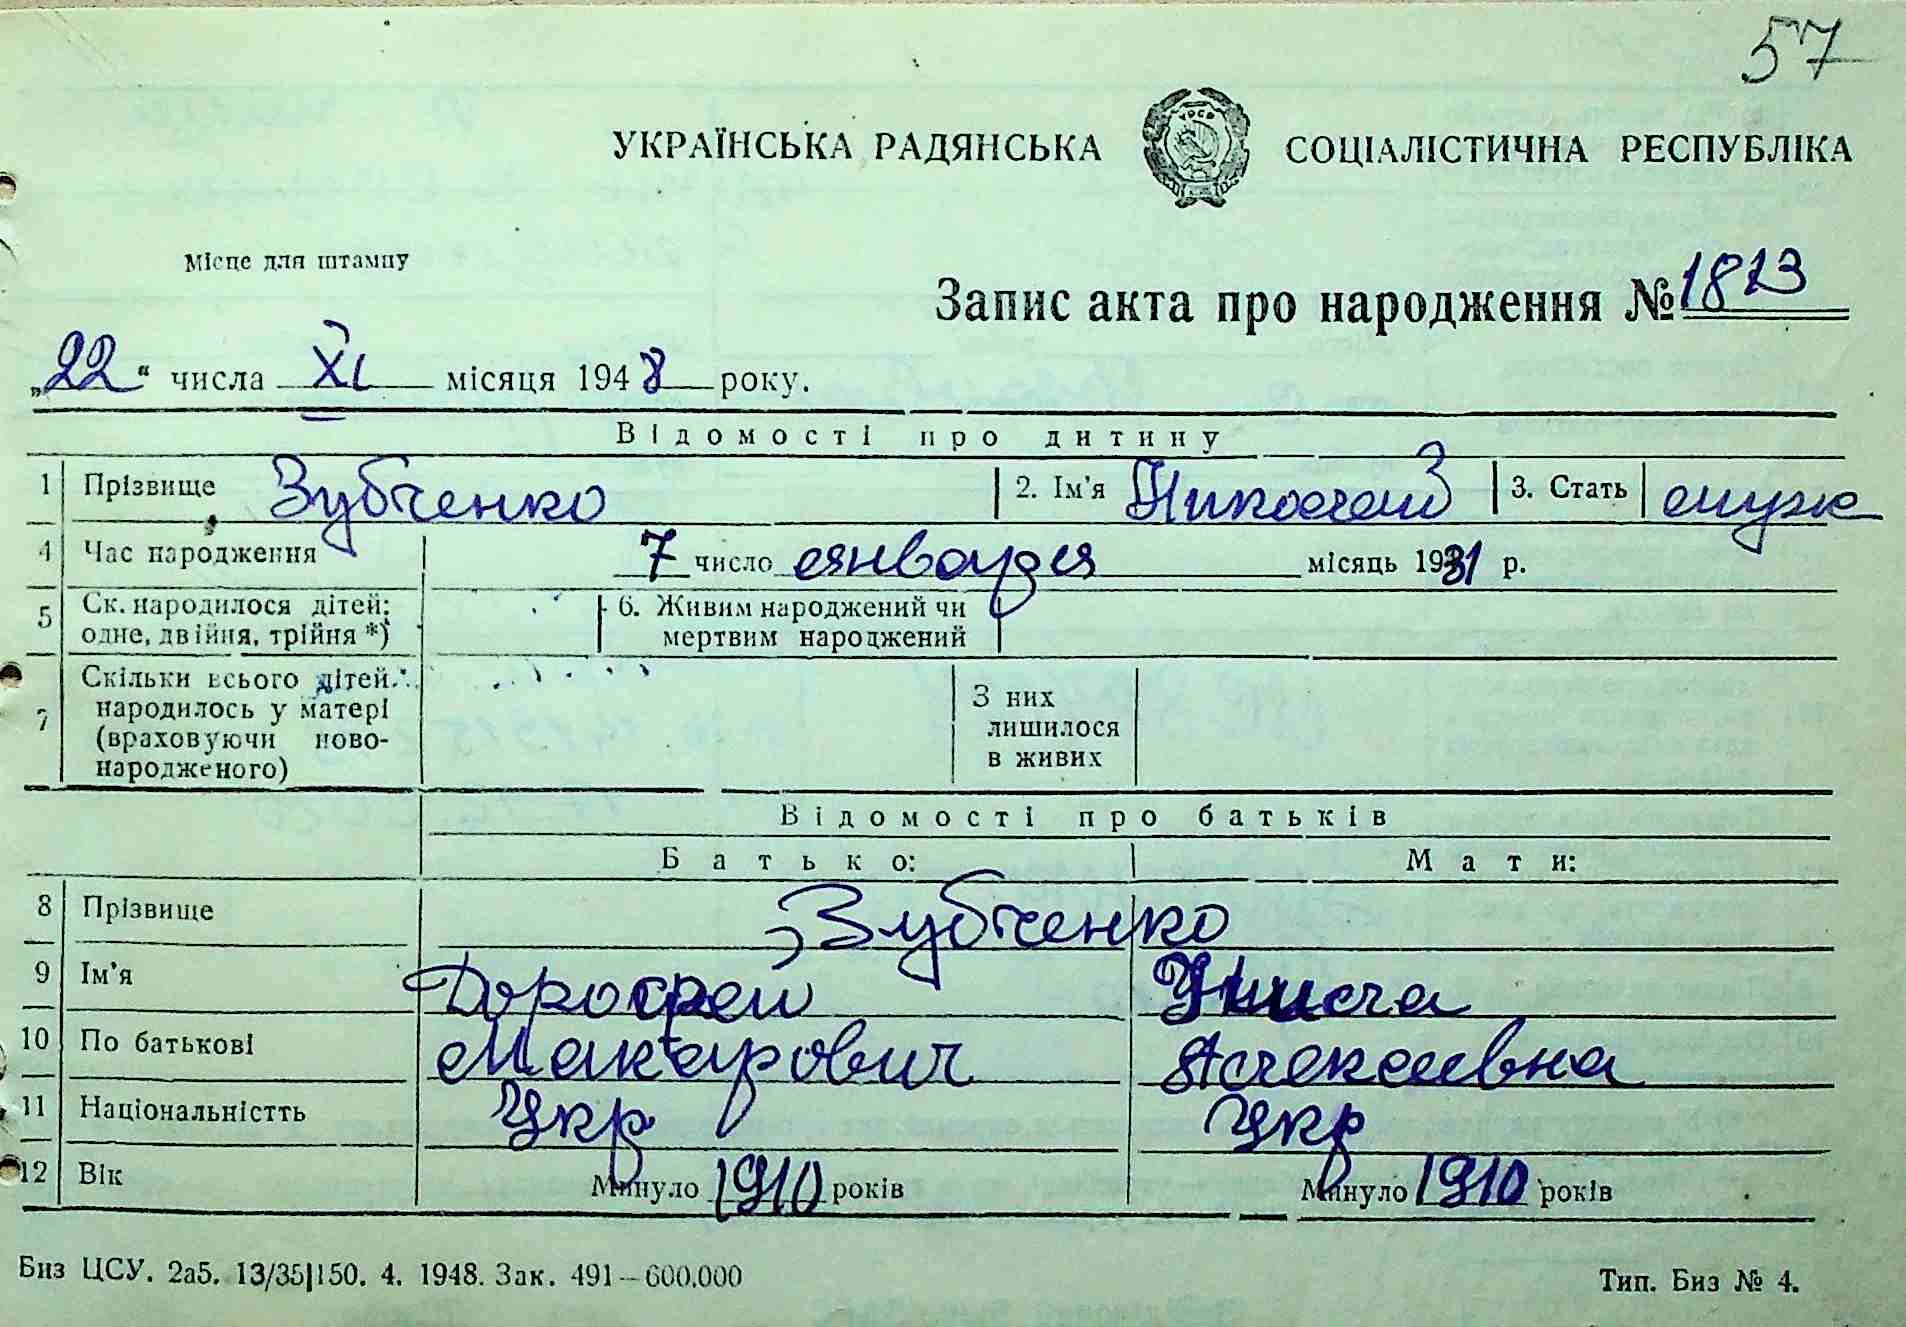 57
УКРАЇНСЬКА РАДЯНСЬКА СОЦІАЛІСТИЧНА РЕСПУБЛІКА
УРСР
Місце для штампу
Запис акта про народження № 1823
„22“ числа XI місяця 1948 року.
Відомості про дитину
1 Прізвище Зубченко 2. Ім'я Николай 3. Стать муж
4 Час народження 7 число января місяць 1931 р.
5 Ск. народилося дітей: одне, двійня, трійня *) 6. Живим народжений чи мертвим народжений
7 Скільки всього дітей народилось у матері (враховуючи новонародженого) З них лишилося в живих
Відомості про батьків
Батько: Мати:
8 Прізвище Зубченко
9 Ім'я Дорофей
10 По батькові Макарович Алексеевна
11 Національністть Укр Укр
12 Вік Минуло 1910 років Минуло 1910 років
Биз ЦСУ. 2а5. 13/35|150. 4. 1948. Зак. 491—600.000 Тип. Биз № 4.